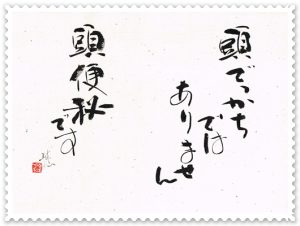 頭でっかち
では
ありません
頭便秘
です